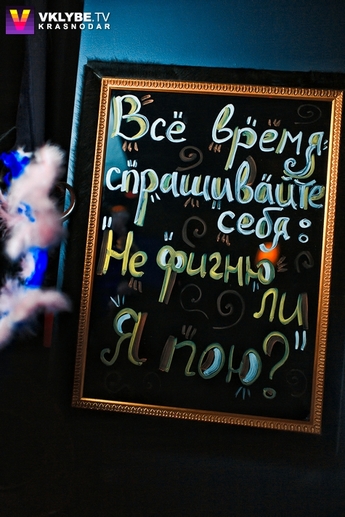 VKLYBE.TV
KRASNODAR
Всё время
спрашивайте
себя:
"Не фигню
ли
Я пою?"